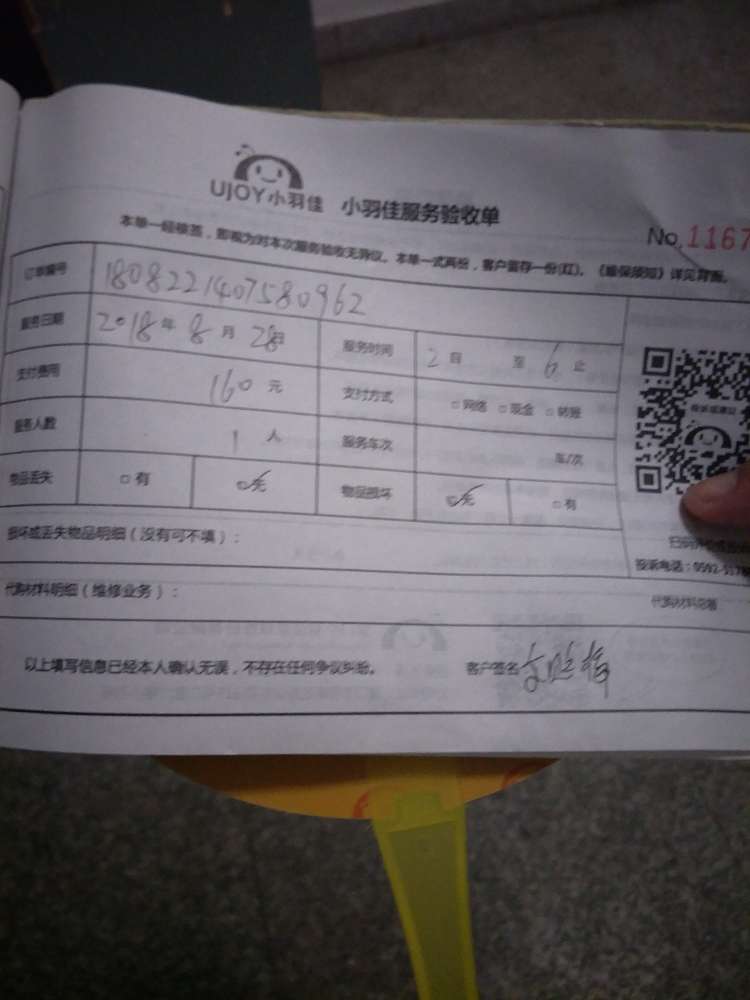 UJOY小羽佳 小羽佳服务验收单
No.1167
本单一经核签，即视为对本次服务验收无异议。本单一式两份，客户留存一份(红)。《维保须知》详见背面。
订单编号 1808221407580962
服务日期 2018年8月28日 服务时间 2自 至6止
支付费用 160元 支付方式 □网络 □现金 □转账
服务人数 1人 服务车次 车/次
物品丢失 □有 □无 物品损坏 □无 □有
损坏或丢失物品明细（没有可不填）：
投诉电话：0592-517
代购材料明细（维修业务）：
以上填写信息已经本人确认无误，不存在任何争议纠纷。 客户签名